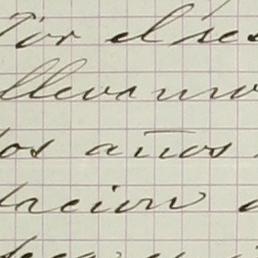 Por el res
llevamo
os años
tacion a